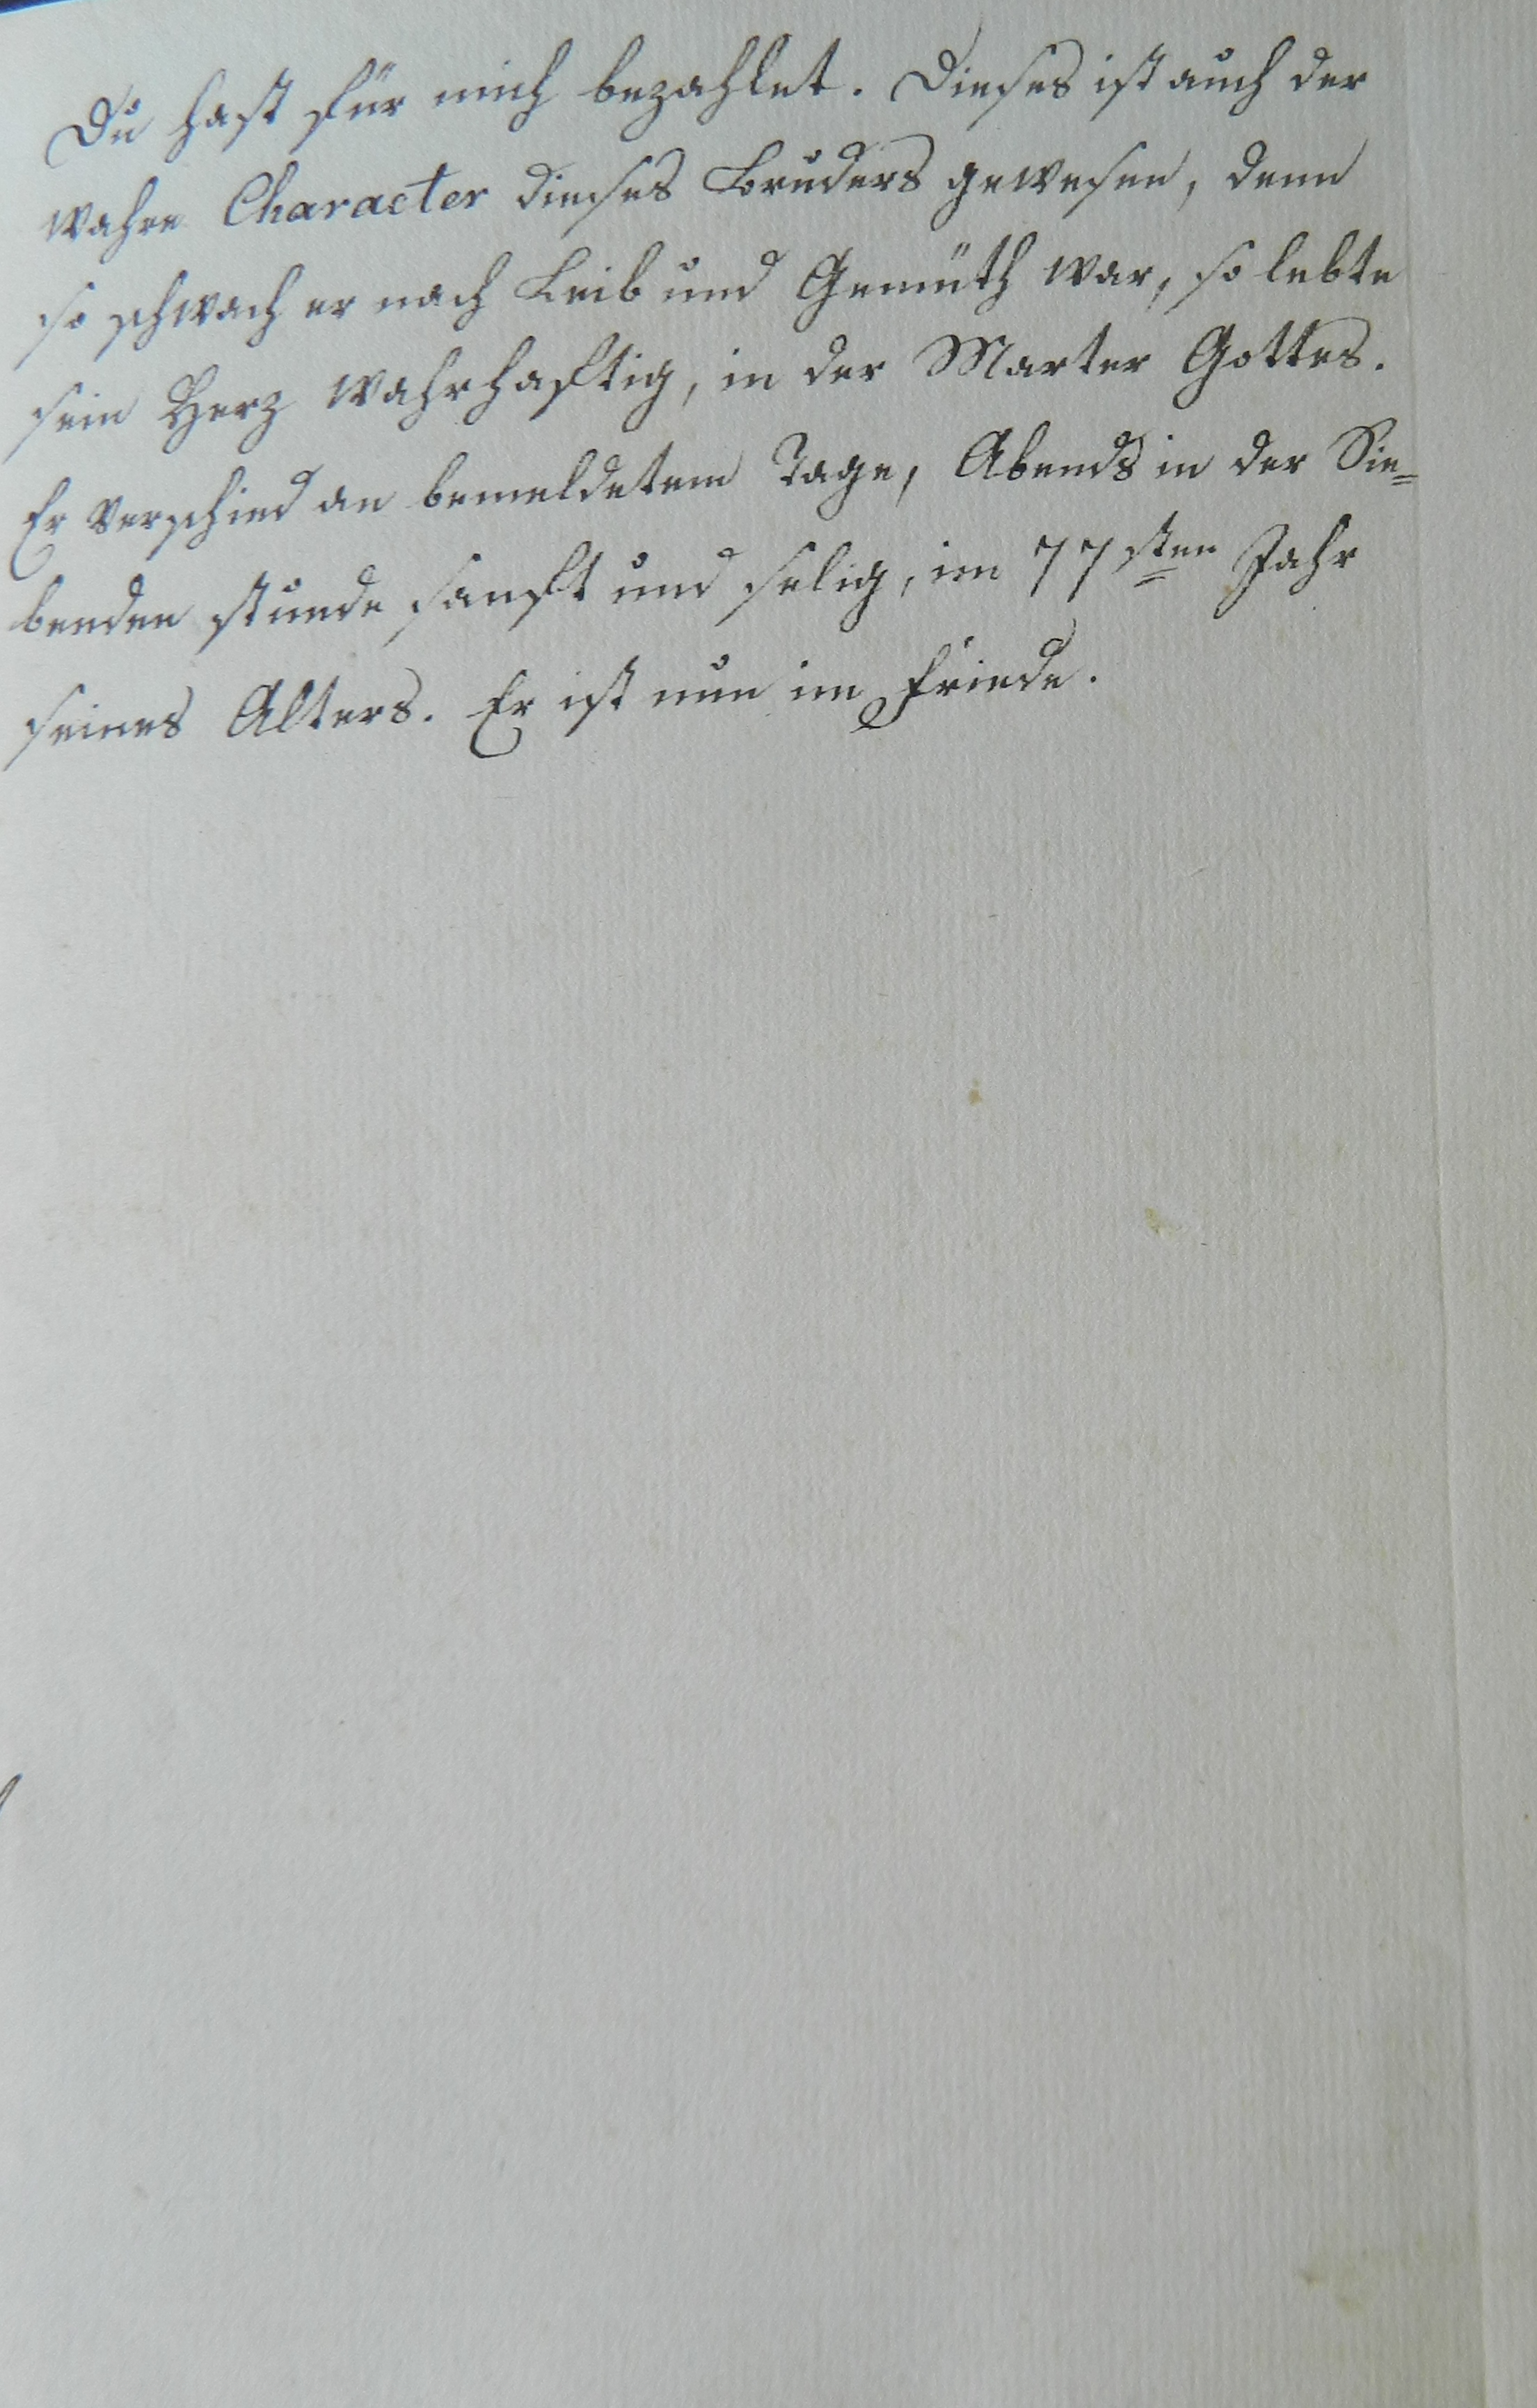 Du hast für mich bezahlet. Dieses ist auch der
wahre Character dieses Bruders gewesen, denn
so schwach er nach Leib und Gemüth war, so lebte
sein Herz wahrhaftig, in der Marter Gottes.
Er verschied an bemeldetem Tage, Abends in der Sie=
benden stunde sanft und selig, im 77sten Jahr
seines Alters. Er ist nun im Friede.